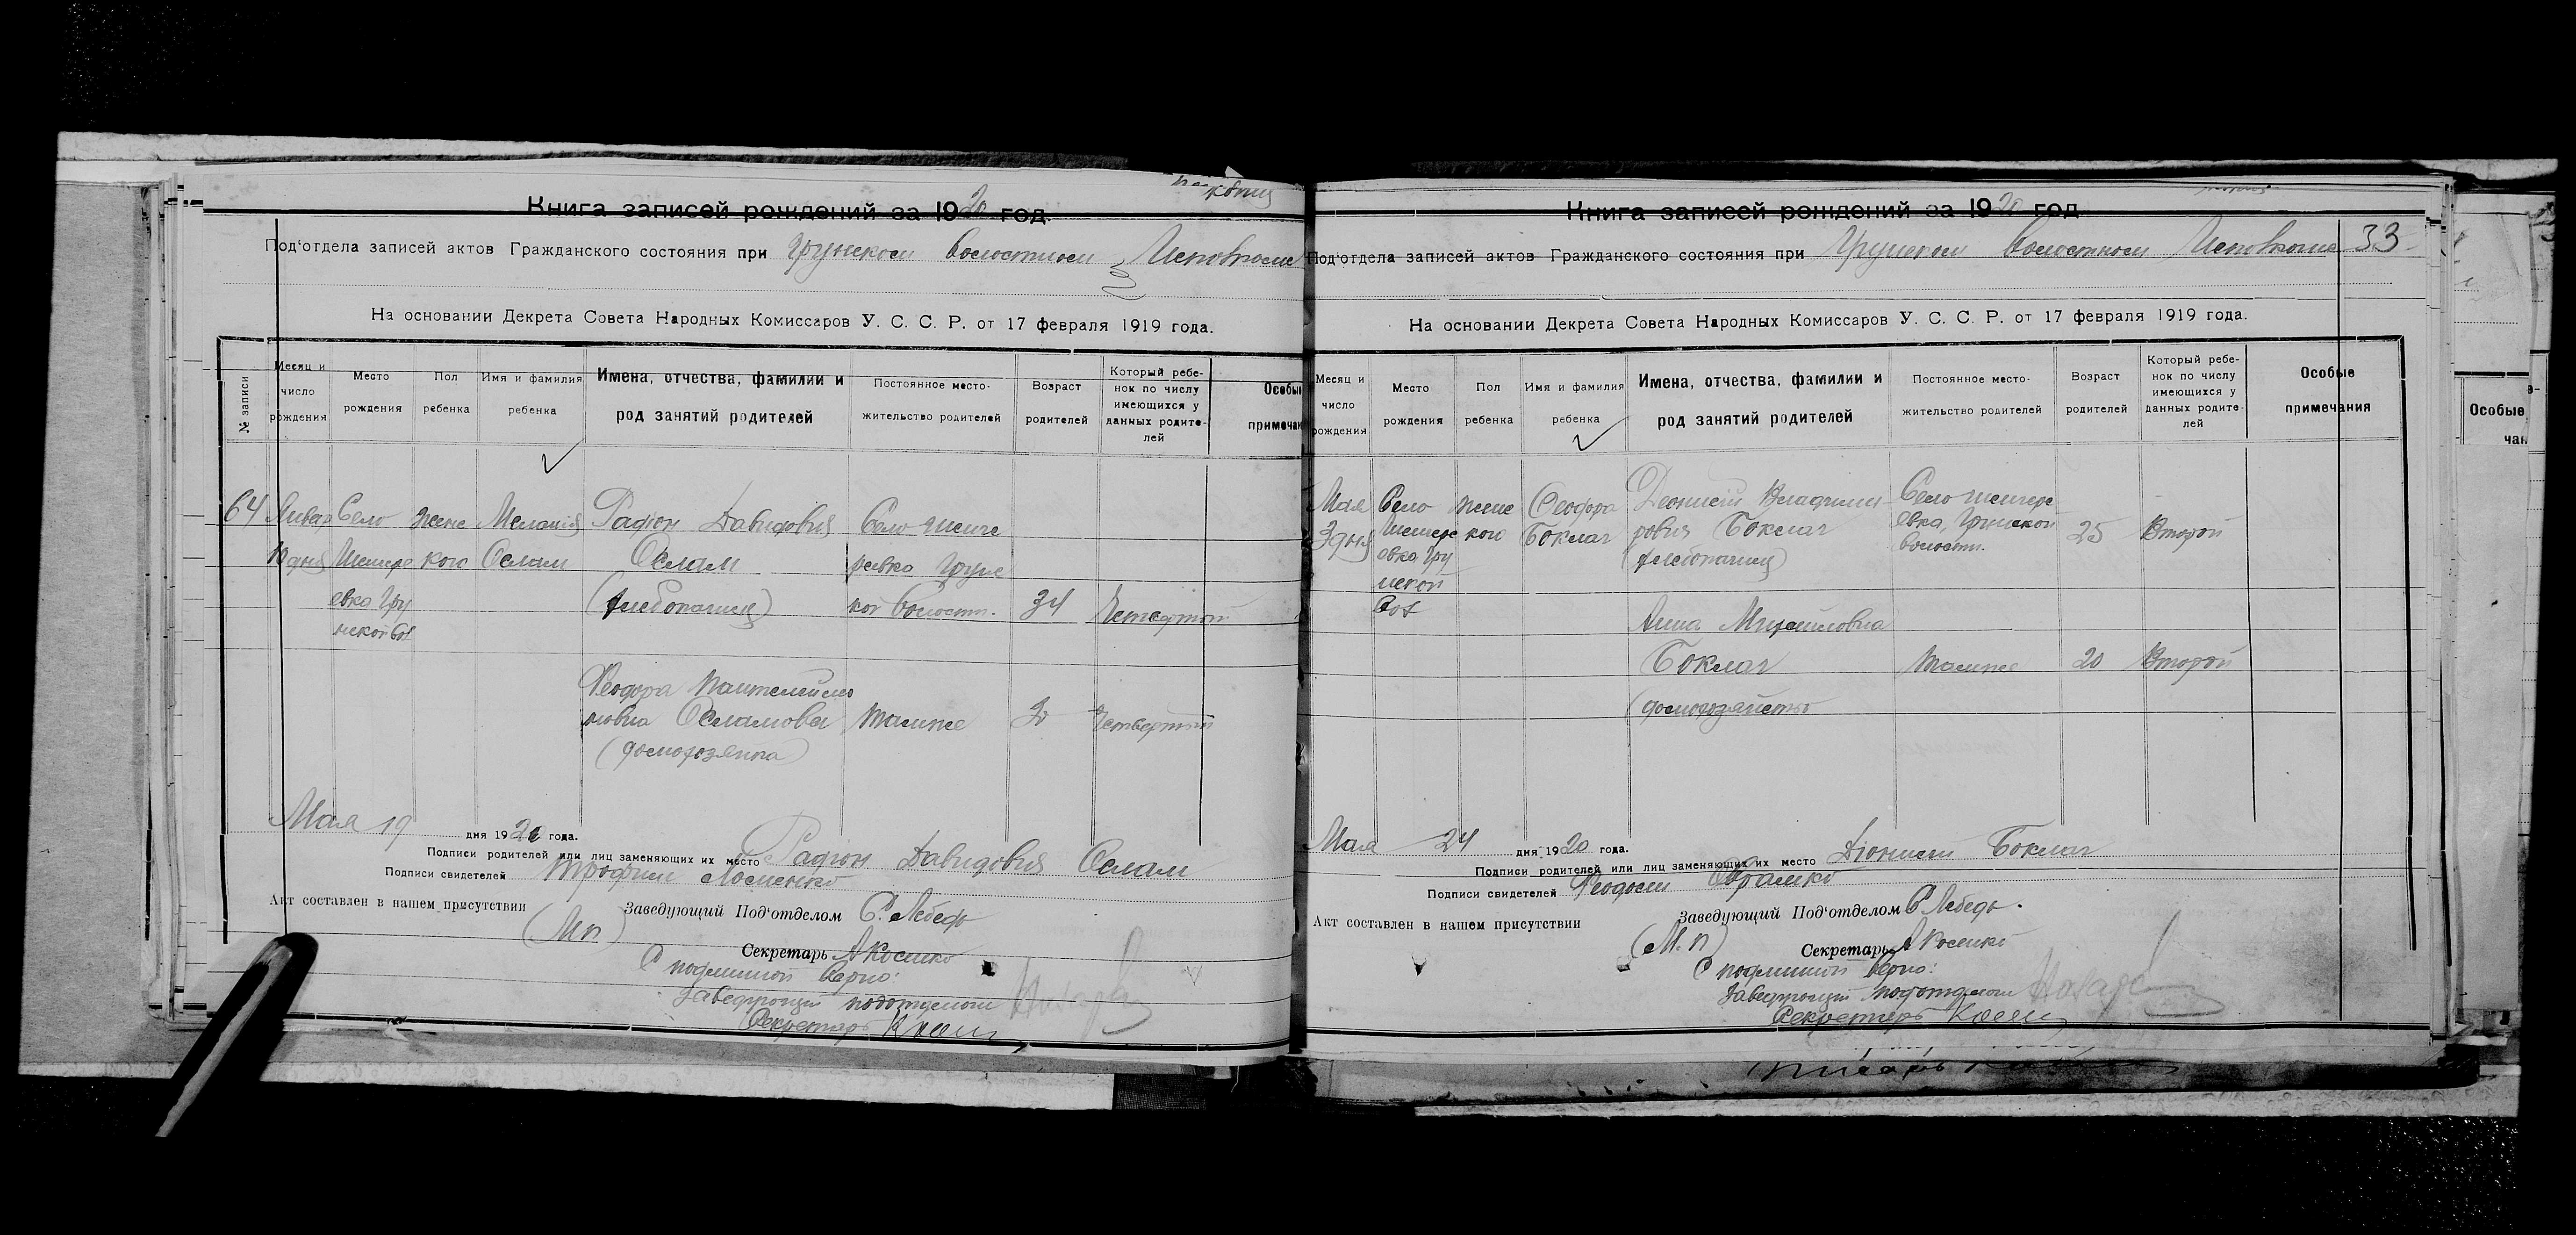 копия
Книга записей рождений за 1920 год.
Под'отдела записей актов Гражданского состояния при Грунском Волостном Исполкоме
На основании Декрета Совета Народных Комиссаров У. С. С. Р. от 17 февраля 1919 года.
№ записи
Месяц и число рождения
Место рождения
Пол ребенка
Имя и фамилия ребенка
Имена, отчества, фамилии и род занятий родителей
Постоянное место-жительство родителей
Возраст родителей
Который ребе-нок по числу имеющихся у данных родите-лей
Особы
примечан
64 Январ Село жене Мелания Радион Давидович Село
10 дня кого Ослам Ослам
евка Гру (хлебопашец) кой Волости. 34 Четвертый
нской вол
Феодора
новна Осламова Также Четвертый
(домохозяйка)
Мая 19 дня 1920 года.
Подписи родителей или лиц заменяющих их место Радион Давидович Ослам
Подписи свидетелей Трофим
Акт составлен в нашем присутствии
(М п)
Заведующий Под'отделом С. Лебедь
Секретарь А Косенко
С подлинной верно:
Заведующий подотделом
Секретарь
Книга записей рождений за 1920 год.
33
Под'отдела записей актов Гражданского состояния при Грунском Волостном Исполкоме
На основании Декрета Совета Народных Комиссаров У. С. С. Р. от 17 февраля 1919 года.
Месяц и число рождения
Место рождения
Пол ребенка
Имя и фамилия ребенка
Имена, отчества, фамилии и род занятий родителей
Постоянное место-жительство родителей
Возраст родителей
Который ребе-нок по числу имеющихся у данных родите-лей
Особые примечания
Мая Село жене Феодора Деонисий Владими Село
3 дня кого Боклаг рович Боклаг евка, Грунской 25 Второй
евка Гру (хлебопашец) волости.
нской
вол
Анна Михайловна
Боклаг Также 20 Второй
(домохозяйство
Мая 24 дня 1920 года.
Подписи родителей или лиц заменяющих их место Дионисий Боклаг
Подписи свидетелей Феодосий
Акт составлен в нашем присутствии
(М. п)
Заведующий Под'отделом С Лебедь.
Секретарь А Косенко
С подлинной верно:
Заведующий подотделом
Секретарь
Особые
чан